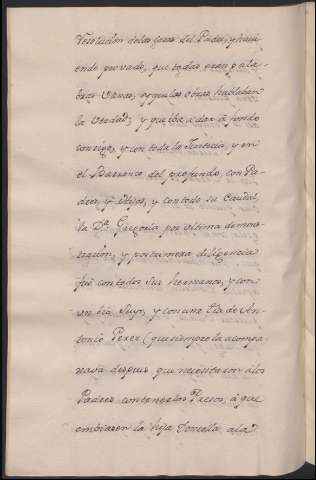 resolucion de las cosas del Padre, y havi
endo provado, que todas eran pala-
bras vanas, y que las obras hablaban
la verdad; y que iba a dar à fondo
consigo, y con toda la Parentela, y en
el Barranco del profundo, con Pa-
dres, y Hijos, y con todo su Caudal,
la D.ª Gregoria por ultima demons-
trazion, y por primera diligencia
fue con todos sus hermanos, y con
un tio suyo, y con una tia de An-
tonio Perez (que siempre la acompa-
ñava despues que necesitaron a los
Padres con tenerlos Presos, á que
embiasen la hija Doncella a la